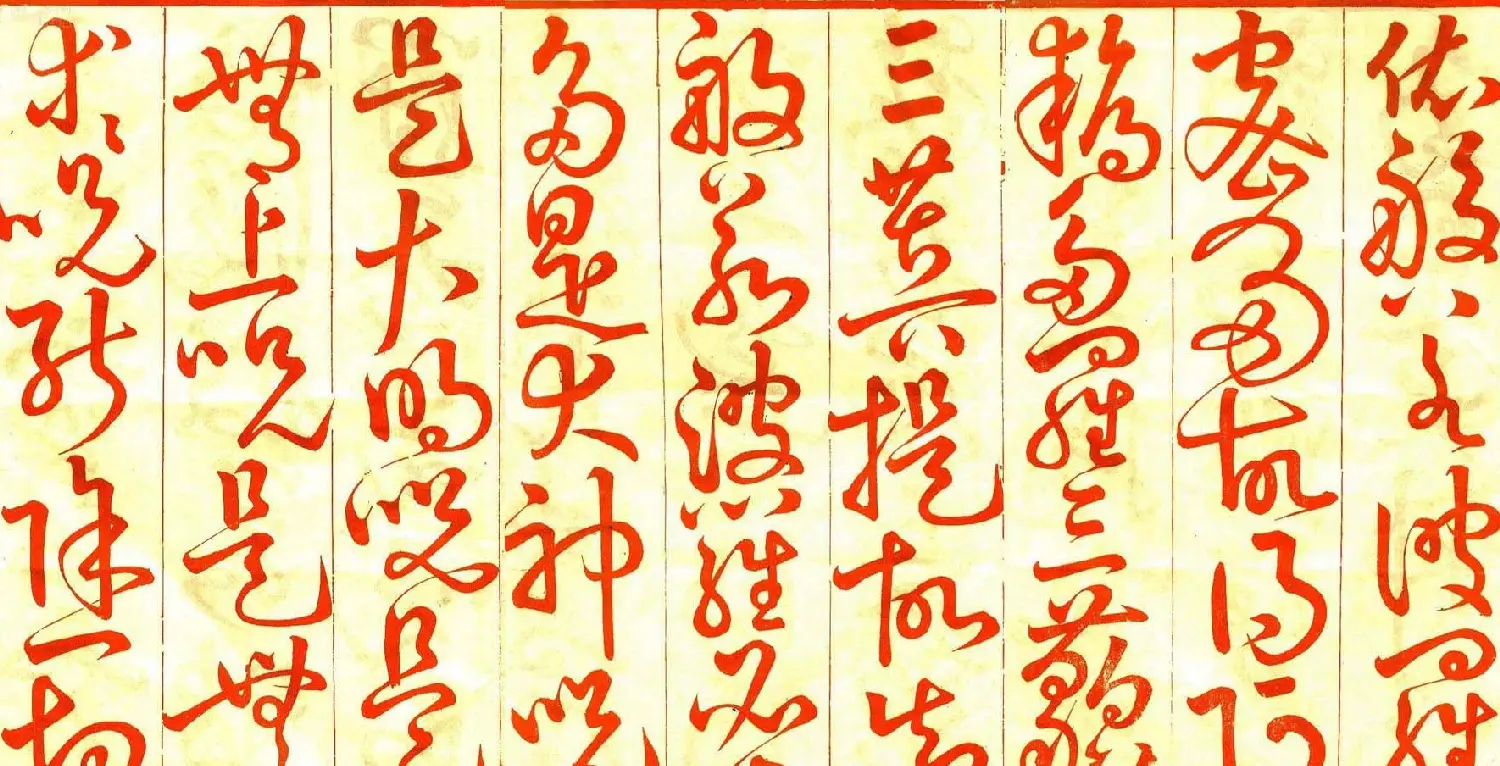 依般若波羅
蜜多故得阿
耨多羅三藐
三菩提故知
般若波羅蜜
多是大神咒
是大明咒是
無上咒是無
等〻咒能除一切